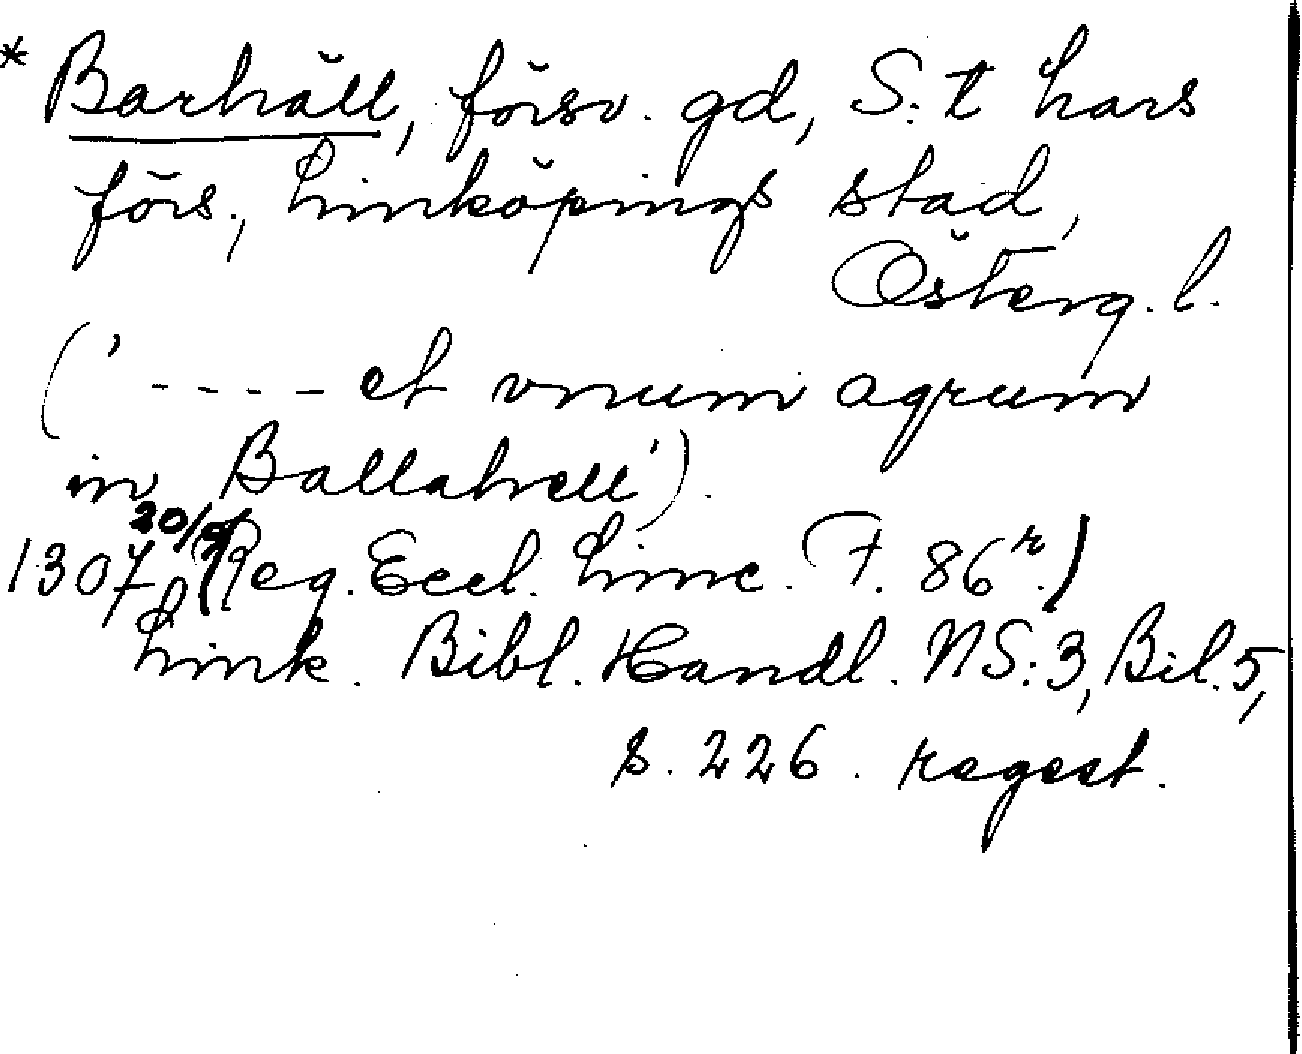 * Barhäll, försv. gd, S:t Lars
förs., Linköpings stad,
Österg. l.
(' - - - - et vnum agrum
in Ballahell').
1307 20/5 (Reg. Eccl. Linc. F. 86r.)
Link. Bibl. Handl. NS:3, Bil. 5,
s. 226. regest.